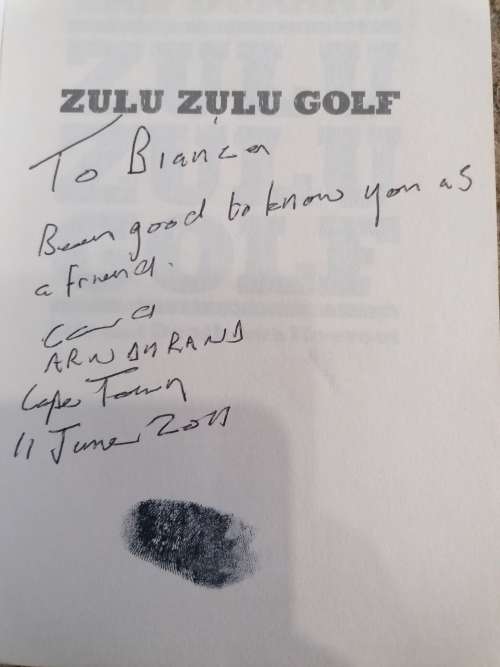 ZULU ZULU GOLF
To Bianca
Been good to know you as
a friend.
ARN DURAND
Cape Town
11 June 2011